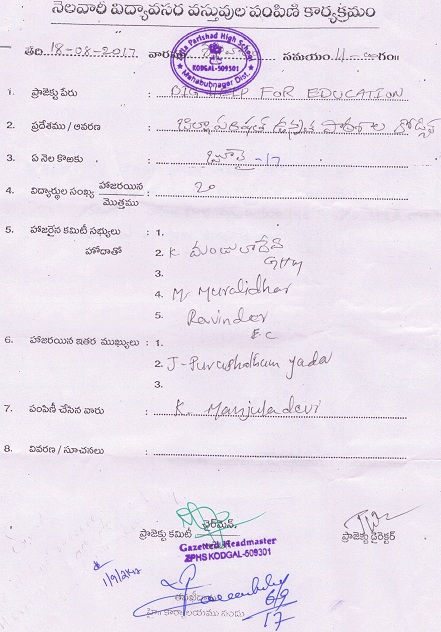 నెలవారీ విద్యావసర వస్తువుల పంపిణీ కార్యక్రమం
తేది 18-08-2017 వారము సమయం 4-00 గం॥
Zilla Parishad High School
KODGAL-509301
Mahabubnagar Dist.
1. ప్రాజెక్టు పేరు : BIG HELP FOR EDUCATION
2. ప్రదేశము / ఆవరణ : జిల్లా పరిషత్ ఉన్నత పాఠశాల కోడ్గల్
3. ఏ నెల కొఱకు : జూలై -17
4. విద్యార్థుల సంఖ్య హాజరయిన : 20
మొత్తము
5. హాజరైన కమిటీ సభ్యులు : 1.
హోదాతో 2. K మంజులాదేవి
GHM
3.
4. M. Muralidhar
5. Ravinder
6. హాజరయిన ఇతర ముఖ్యులు : 1.
2. J. Purushotham yadav
3.
7. పంపిణీ చేసిన వారు : K. Manjuladevi
8. వివరణ / సూచనలు :
ప్రాజెక్టు కమిటీ ఛైర్‌మెన్ ప్రాజెక్టు డైరెక్టర్
Gazetted Headmaster
ZPHS KODGAL-509301
6/9
17